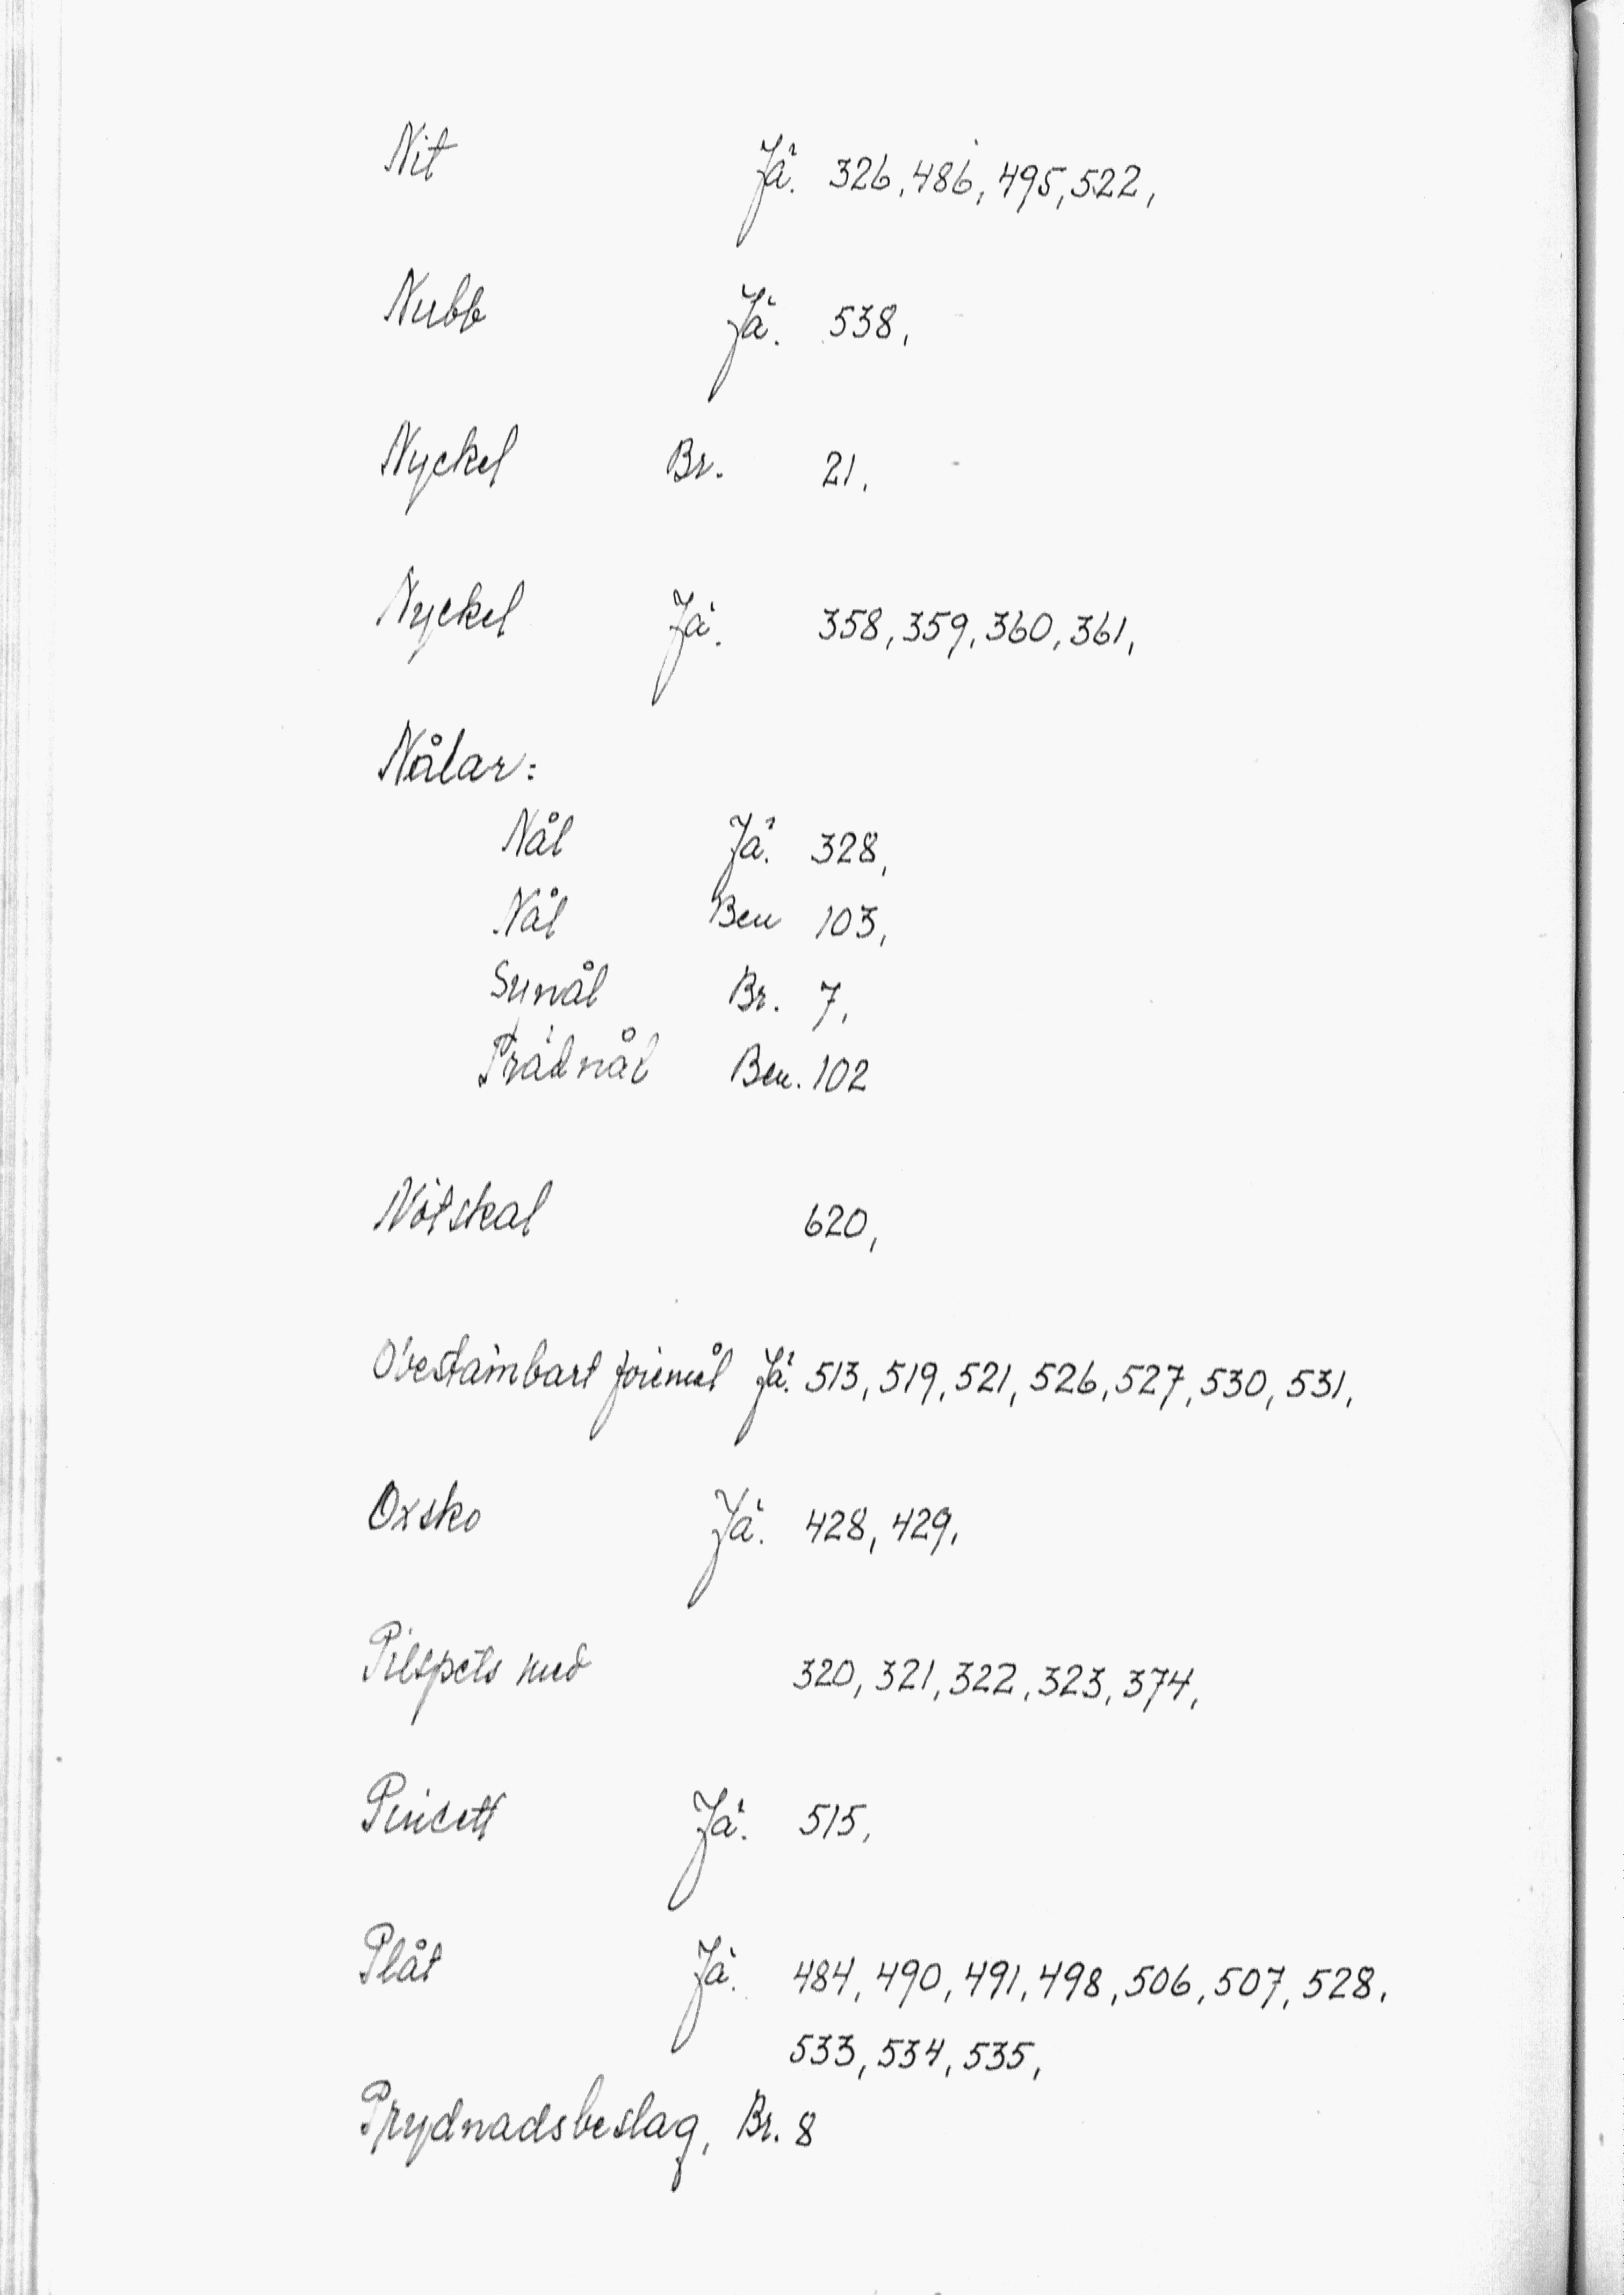 Nit Jä. 326, 486, 495, 522,
Nubb Jä. 538,
Nyckel Br. 21,
Nyckel Jä. 358, 359, 360, 361,
Nålar:
Nål Jä. 328,
Nål Ben 103,
Synål Br. 7,
Trädnål Ben. 102
Nötskal 620,
Obestämbart föremål Jä. 513, 519, 521, 526, 527, 530, 531,
Oxsko Jä. 428, 429,
Pilspets 320, 321, 322, 323, 374,
Pincett Jä. 515,
Plåt Jä. 484, 490, 491, 498, 506, 507, 528,
533, 534, 535,
Prydnadsbeslag, Br. 8